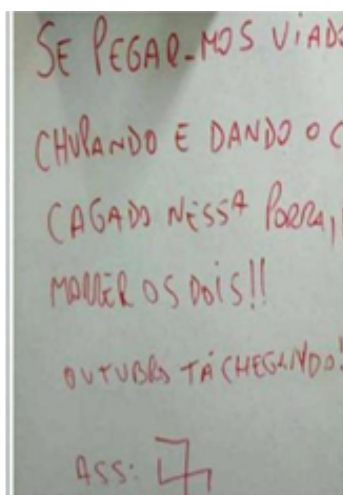 SE PEGAR-MOS VIADO
CHUPANDO E DANDO O C
CAGADO NESSA PORRA,
MORRER OS DOIS!!
OUTUBRO TÁ CHEGANDO!
ASS: